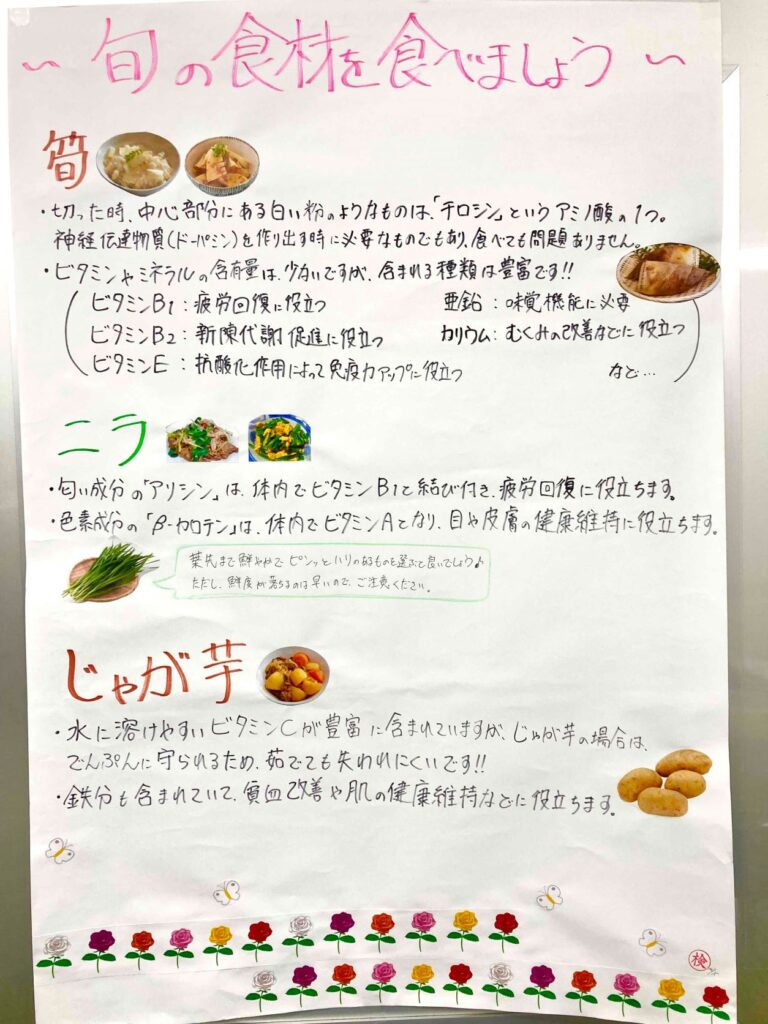 ～ 旬の食材を食べましょう ～
筍
・切った時、中心部分にある白い粉のようなものは、「チロシン」というアミノ酸の1つ。
神経伝達物質(ドーパミン)を作り出す時に必要なものでもあり、食べても問題ありません。
・ビタミンやミネラルの含有量は、少ないですが、含まれる種類は豊富です!!
ビタミンB1：疲労回復に役立つ 亜鉛：味覚機能に必要
ビタミンB2：新陳代謝促進に役立つ カリウム：むくみの改善などに役立つ
ビタミンE：抗酸化作用によって免疫力アップに役立つ など…
ニラ
・匂い成分の「アリシン」は、体内でビタミンB1と結び付き、疲労回復に役立ちます。
・色素成分の「β-カロテン」は、体内でビタミンAとなり、目や皮膚の健康維持に役立ちます。
葉先まで鮮やかでピンッとハリのあるものを選ぶと良いでしょう♪
ただし、鮮度が落ちるのは早いので、ご注意ください。
じゃが芋
・水に溶けやすいビタミンCが豊富に含まれていますが、じゃが芋の場合は、
でんぷんに守られるため、茹でても失われにくいです!!
・鉄分も含まれていて、貧血改善や肌の健康維持などに役立ちます。
検